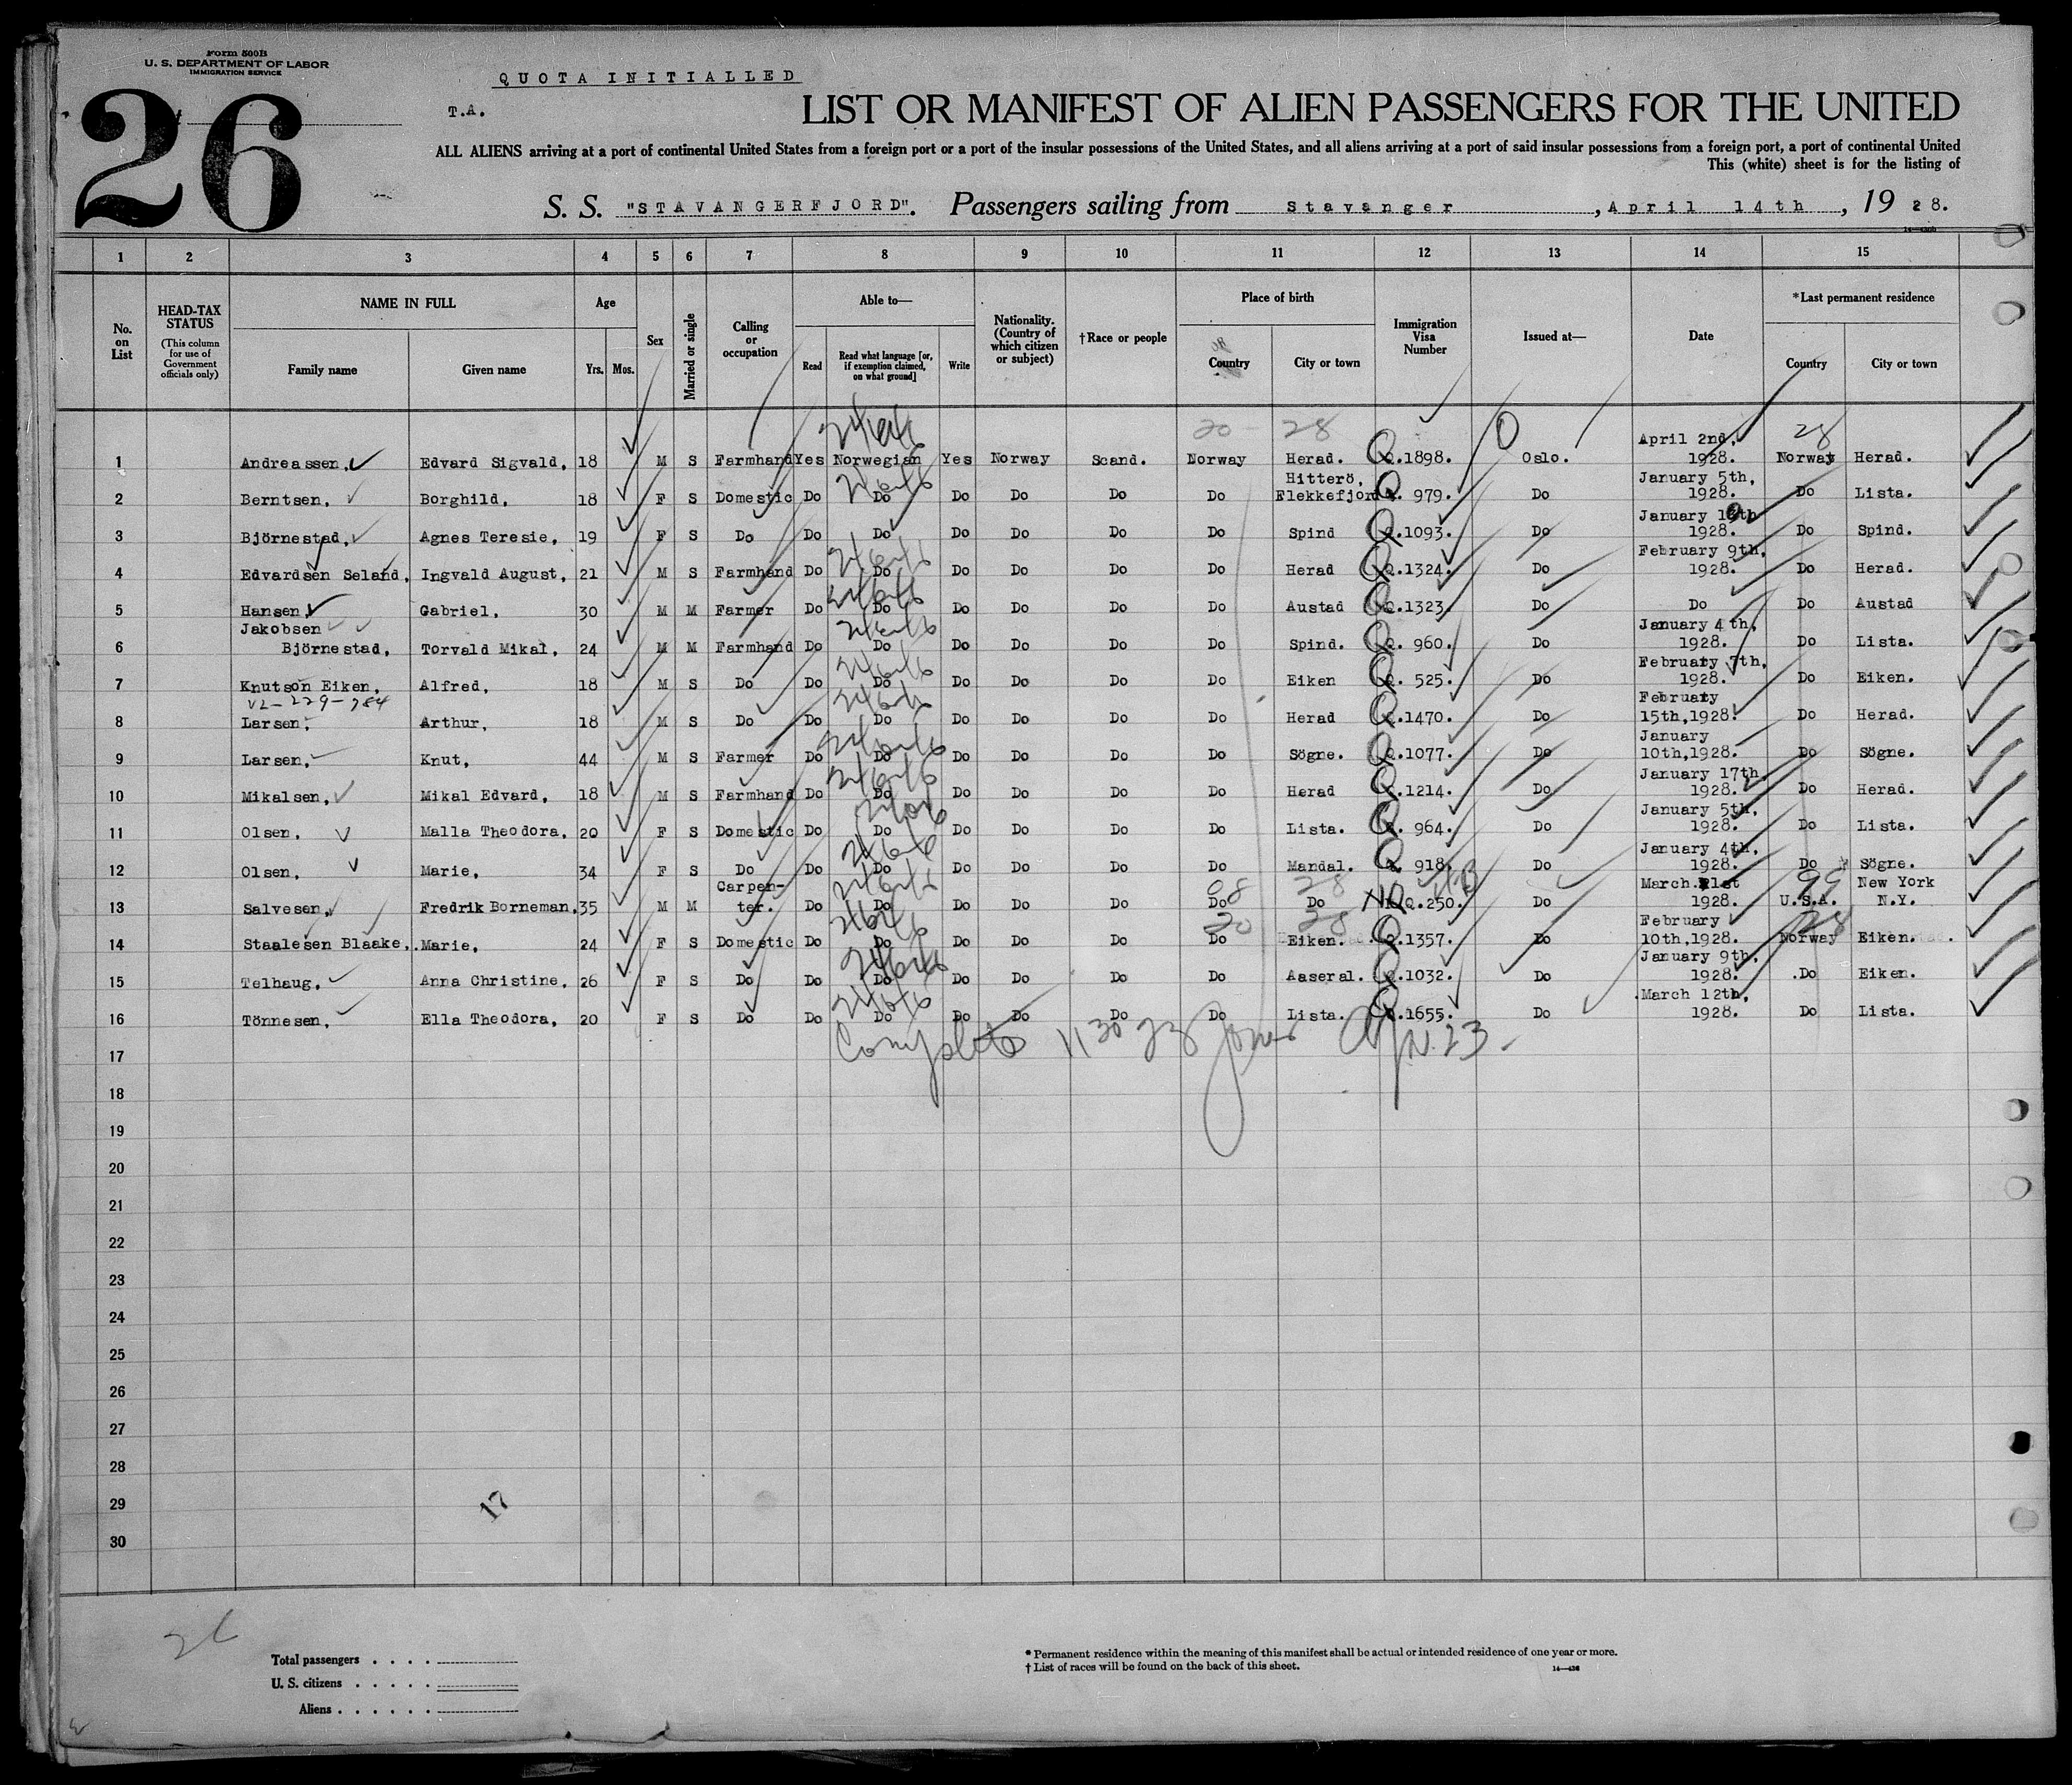 Form 500B
U. S. DEPARTMENT OF LABOR
IMMIGRATION SERVICE
26
QUOTA INITIALLED
T.A.
LIST OR MANIFEST OF ALIEN PASSENGERS FOR THE UNITED
ALL ALIENS arriving at a port of continental United States from a foreign port or a port of the insular possessions of the United States, and all aliens arriving at a port of said insular possessions from a foreign port, a port of continental United
This (white) sheet is for the listing of
S. S. "STAVANGERFJORD". Passengers sailing from Stavanger, April 14th, 1928.
1 2 3 4 5 6 7 8 9 10 11 12 13 14 15
No. on List HEAD-TAX STATUS (This column for use of Government officials only) NAME IN FULL Family name Given name Age Yrs. Mos. Sex Married or single Calling or occupation Able to— Read Read what language [or, if exemption claimed, on what ground] Write Nationality. (Country of which citizen or subject) †Race or people Place of birth Country City or town Immigration Visa Number Issued at— Date *Last permanent residence Country City or town
1 Andreassen, Edvard Sigvald, 18 M S Farmhand Yes Norwegian Yes Norway Scand. Norway Herad. Q.1898. Oslo. April 2nd, 1928. Norway Herad.
2 Berntsen, Borghild, 18 F S Domestic Do Do Do Do Do Do Hitterö, Flekkefjord Q. 979. Do January 5th, 1928. Do Lista.
3 Björnestad, Agnes Teresie, 19 F S Do Do Do Do Do Do Do Spind Q.1093. Do January 1928. Do Spind.
4 Edvardsen Seland, Ingvald August, 21 M S Farmhand Do Do Do Do Do Do Herad Q.1324. Do February 9th, 1928. Do Herad.
5 Hansen, Gabriel, 30 M M Farmer Do Do Do Do Do Do Austad Q.1323. Do Do Do Austad
6 Jakobsen Björnestad, Torvald Mikal, 24 M M Farmhand Do Do Do Do Do Do Spind. Q. 960. Do January 4th, 1928. Do Lista.
7 Knutson Eiken, Alfred, 18 M S Do Do Do Do Do Do Do Eiken Q. 525. Do February 7th, 1928. Do Eiken.
V2-229-784
8 Larsen, Arthur, 18 M S Do Do Do Do Do Do Do Herad Q.1470. Do February 15th,1928. Do Herad.
9 Larsen, Knut, 44 M S Farmer Do Do Do Do Do Do Sögne. Q.1077. Do January 10th,1928. Do Sögne.
10 Mikalsen, Mikal Edvard, 18 M S Farmhand Do Do Do Do Do Do Herad Q.1214. Do January 17th, 1928. Do Herad.
11 Olsen, Malla Theodora, 20 F S Domestic Do Do Do Do Do Do Lista. Q. 964. Do January 5th, 1928. Do Lista.
12 Olsen, Marie, 34 F S Do Do Do Do Do Do Do Mandal. Q. 918. Do January 4th, 1928. Do Sögne.
13 Salvesen, Fredrik Borneman, 35 M M Carpen- ter. Do Do Do Do Do Do Do N.Q.250. Do March 21st 1928. U.S.A. New York N.Y.
14 Staalesen Blaake, Marie, 24 F S Domestic Do Do Do Do Do Do Eiken. Q.1357. Do February 10th,1928. Norway Eiken.
15 Telhaug, Anna Christine, 26 F S Do Do Do Do Do Do Do Aaseral. Q.1032. Do January 9th, 1928. Do Eiken.
16 Tönnesen, Ella Theodora, 20 F S Do Do Do Do Do Do Do Lista. Q.1655. Do March 12th, 1928. Do Lista.
17 Complete
18
19
20
21
22
23
24
25
26
27
28
29
30
17
Total passengers . . . .
U. S. citizens . . . . .
Aliens . . . . . .
* Permanent residence within the meaning of this manifest shall be actual or intended residence of one year or more.
† List of races will be found on the back of this sheet.